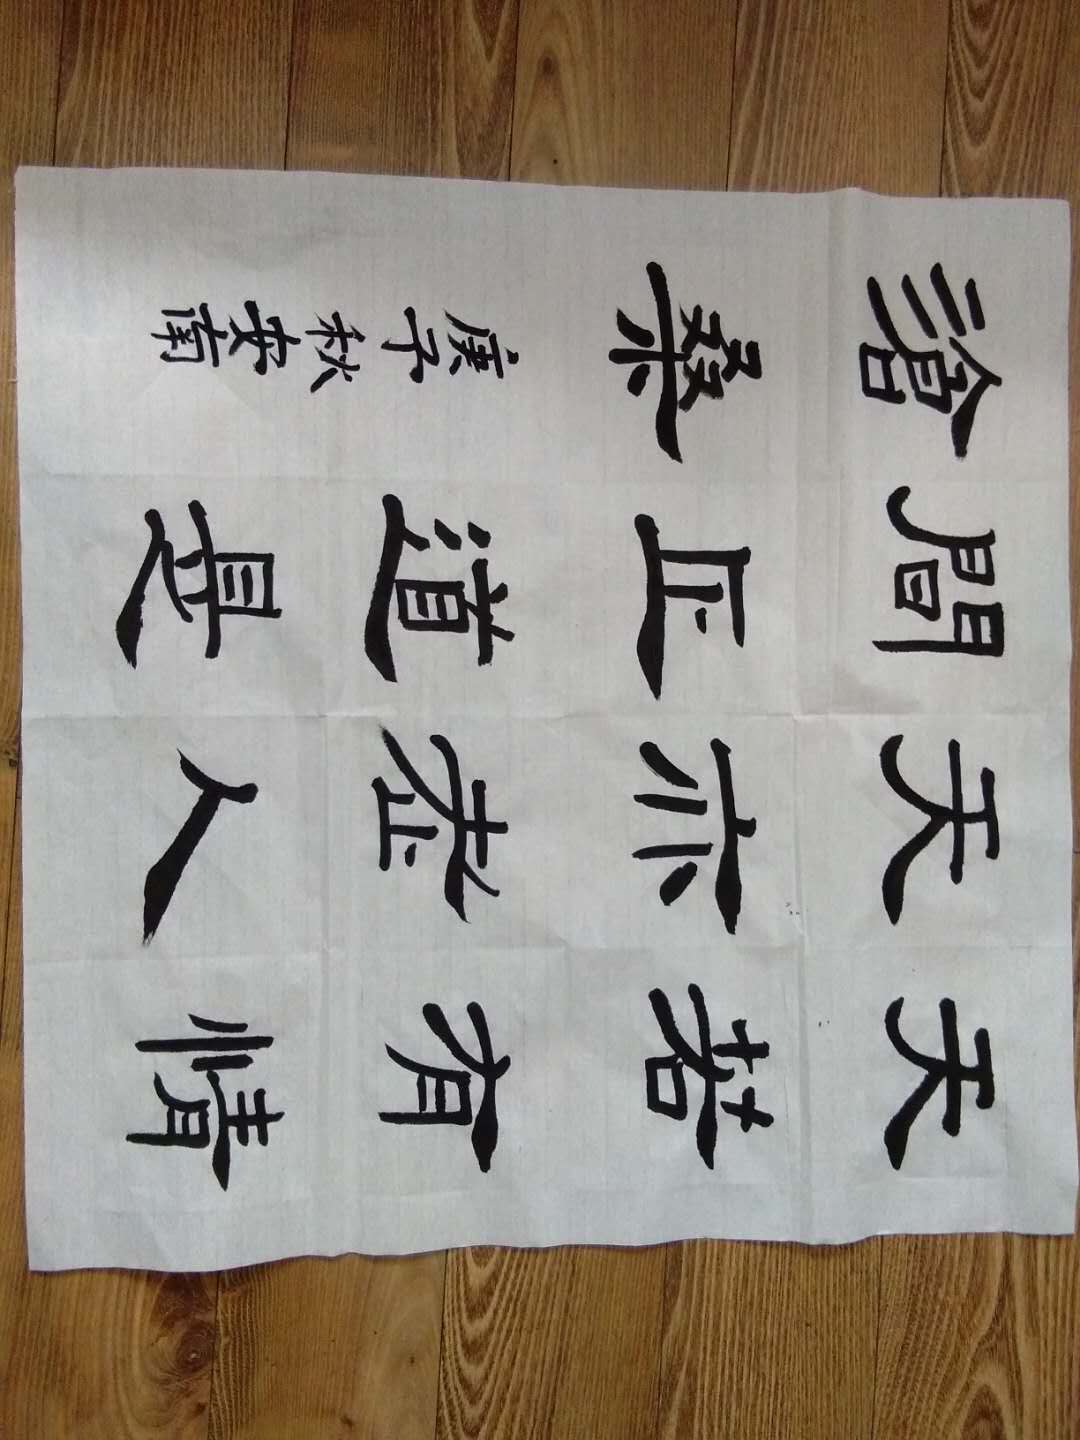 天若有情
天亦老人
間正道是
滄桑
庚子秋安南